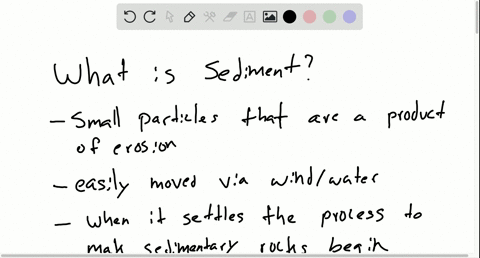 What is Sediment?
- Small particles that are a product
of erosion
- easily moved via wind/water
- when it settles the process to
mak sedimentary rocks begin